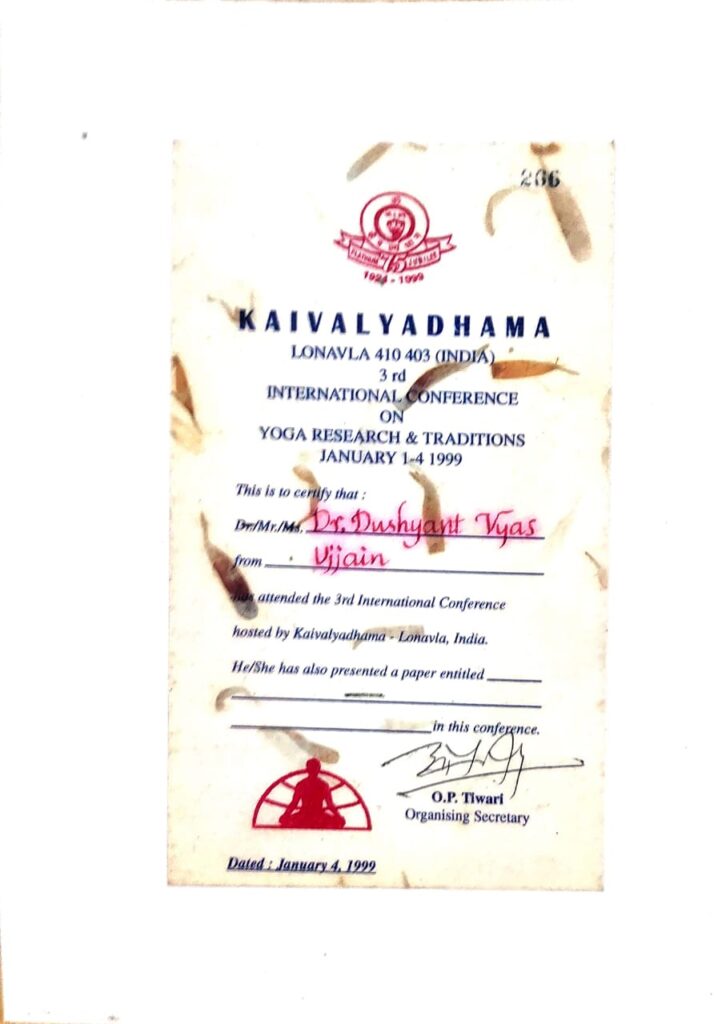 266
PLATINUM 75 JUBILEE
1924 - 1999
KAIVALYADHAMA
LONAVLA 410 403 (INDIA)
3 rd
INTERNATIONAL CONFERENCE
ON
YOGA RESEARCH & TRADITIONS
JANUARY 1-4 1999
This is to certify that :
Dr./Mr./Ms. Dr. Dushyant Vyas
from Ujjain
has attended the 3rd International Conference
hosted by Kaivalyadhama - Lonavla, India.
He/She has also presented a paper entitled
in this conference.
O.P. Tiwari
Organising Secretary
Dated : January 4, 1999